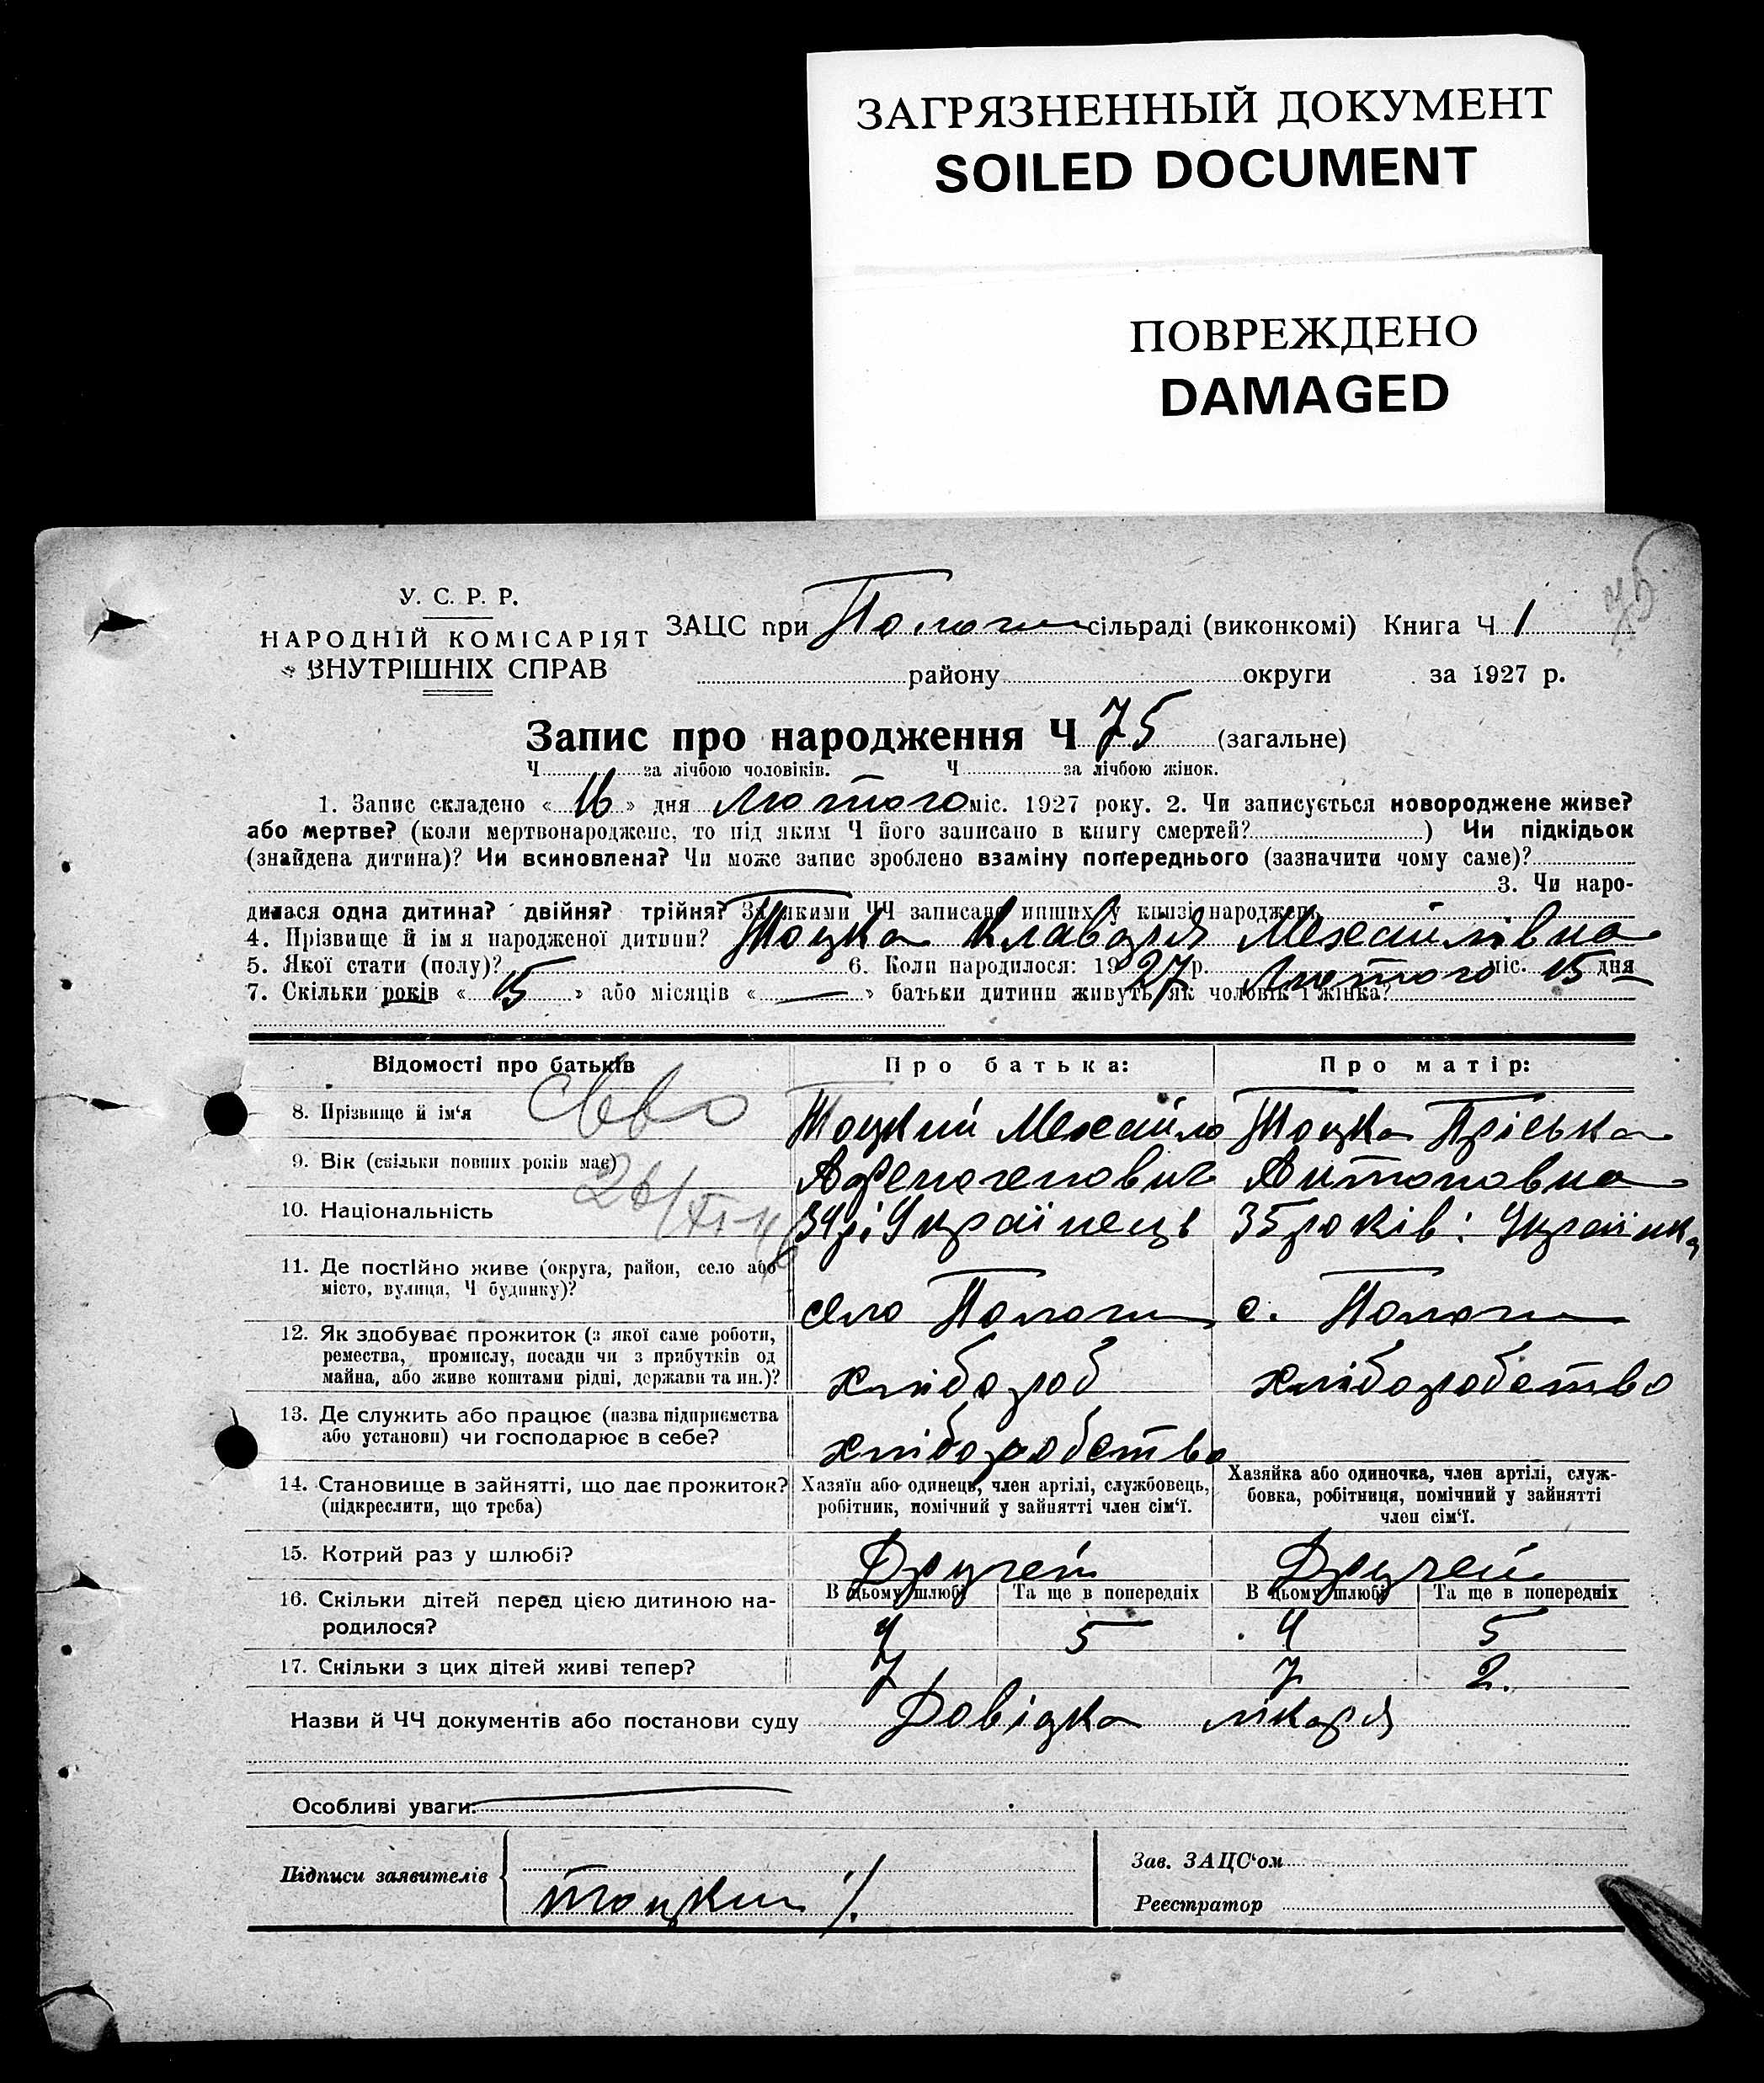 ЗАГРЯЗНЕННЫЙ ДОКУМЕНТ
SOILED DOCUMENT
ПОВРЕЖДЕНО
DAMAGED
75
У. С. Р. Р.
НАРОДНІЙ КОМІСАРІЯТ
ВНУТРІШНІХ СПРАВ
ЗАЦС при Пологи сільраді (виконкомі) Книга Ч 1
району округи за 1927 р.
Запис про народження Ч 75 (загальне)
Ч за лічбою чоловіків. Ч за лічбою жінок.
1. Запис складено « 16 » дня Лютого міс. 1927 року. 2. Чи записується новороджене живе?
або мертве? (коли мертвонароджене, то під яким Ч його записано в книгу смертей? ) Чи підкідьок
(знайдена дитина)? Чи всиновлена? Чи може запис зроблено взаміну попереднього (зазначити чому саме)?
3. Чи наро-
дилася одна дитина? двійня? трійня? За якими ЧЧ записано инших у книзі народжень
4. Прізвище й імя народженої дитини? Тоцка Клавдія Михайлівна
5. Якої стати (полу)? 6. Коли народилося: 1927 р. Лютого міс. 15 дня
7. Скільки років « 15 » або місяців « — » батьки дитини живуть як чоловік і жінка?
Відомості про батьків Про батька: Про матір:
8. Прізвище й ім‘я Тоцкий Михайло Тоцка Пріська
9. Вік (скільки повних років має) Афеногенович Антоновна
10. Національність 34 р. Українець 35 років: Українка
26/XI-46
11. Де постійно живе (округа, район, село або
місто, вулиця, Ч будинку)? село Пологи с. Пологи
12. Як здобуває прожиток (з якої саме роботи,
ремества, промислу, посади чи з прибутків од
майна, або живе коштами рідні, держави та ин.)? хлібороб хліборобство
13. Де служить або працює (назва підприємства
або установи) чи господарює в себе? хліборобство
14. Становище в зайнятті, що дає прожиток?
(підкреслити, що треба)
Хазяїн або одинець, член артілі, службовець,
робітник, помічний у зайнятті член сім‘ї.
Хазяйка або одиночка, член артілі, служ-
бовка, робітниця, помічний у зайнятті
член сім‘ї.
15. Котрий раз у шлюбі? Другей Другей
В цьому шлюбі Та ще в попередніх В цьому шлюбі Та ще в попередніх
16. Скільки дітей перед цією дитиною на-
родилося? 4 5 4 5
17. Скільки з цих дітей живі тепер? 7 7 2.
Назви й ЧЧ документів або постанови суду Довідка лікаря
Особливі уваги:
Підписи заявителів Тоцкий
Зав. ЗАЦС‘ом
Реєстратор